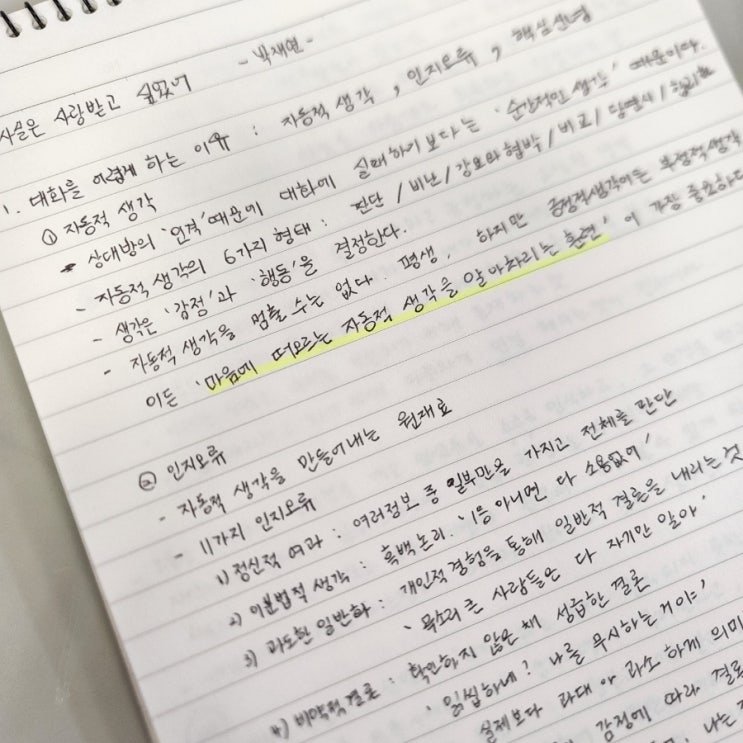 사실은 사랑받고 싶었어 - 박재연 -
1. 대화를 어렵게 하는 이유 : 자동적 생각, 인지오류, 핵심신념
① 자동적 생각
- 상대방의 '인격' 때문에 대화에 실패하기 보다는 '순간적인 생각' 때문이다.
- 자동적 생각의 6가지 형태 : 판단 / 비난 / 강요와 협박 / 비교 / 당연시 / 합리화
- 생각은 '감정'과 '행동'을 결정한다.
- 자동적 생각을 멈출 수는 없다. 평생. 하지만 긍정적생각이든 부정적생각
이든 '마음에 떠오르는 자동적 생각을 알아차리는 훈련'이 가장 중요하다
② 인지오류
- 자동적 생각을 만들어내는 원재료
- 11가지 인지오류
1) 정신적 여과 : 여러정보 중 일부만을 가지고 전체를 판단
2) 이분법적 생각 : 흑백논리. '1등 아니면 다 소용없어'
3) 과도한 일반화 : 개인적 경험을 통해 일반적 결론을 내리는 것
'목소리 큰 사람들은 다 자기만 알아'
4) 비약적결론 : 확인하지 않은 채 성급한 결론
'읽씹하네? 나를 무시하는 거야'
실제보다 과대 or 과소 하게 의미
감정에 따라 결론
나는